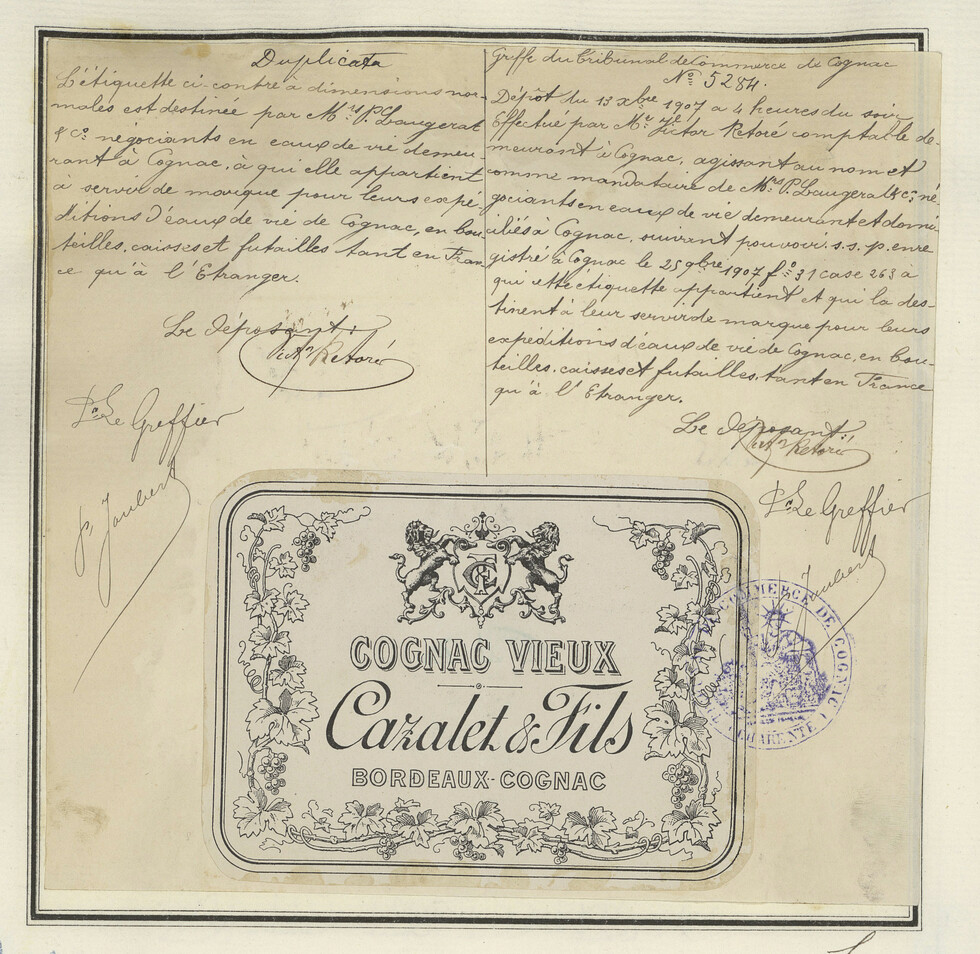 Duplicata
L'étiquette ci-contre à dimensions nor-
males est destinée par Mrs P. Laugerat
& Co négociants en eaux de vie demeu-
rant à Cognac, à qui elle appartient
à servir de marque pour leurs expé-
ditions d'eaux de vie de Cognac, en bou-
teilles, caisses et futailles tant en Fran-
ce qu'à l'Etranger.
Le déposant:
Victor Retoré
Pr Le Greffier
P. Joubert
Greffe du Tribunal de Commerce de Cognac
No 5284.
Dépôt du 13 xbre 1907 à 4 heures du soir
Effectué par Mr Victor Retoré comptable de-
meurant à Cognac, agissant au nom et
comme mandataire de Mrs P. Laugerat & Co, né-
gociants en eaux de vie demeurant et domi-
ciliés à Cognac, suivant pouvoir s.s.p. enre
gistré à Cognac le 25 9bre 1907 fo 31 case 263 à
qui cette étiquette appartient et qui la des-
tinent à leur servir de marque pour leurs
expéditions d'eaux de vie de Cognac, en bou-
teilles, caisses et futailles, tant en France
qu'à l'Etranger.
Le déposant:
Victor Retoré
Pr Le Greffier
Joubert
COGNAC VIEUX
Cazalet & Fils
BORDEAUX-COGNAC
COMMERCE DE COGNAC
CHARENTE